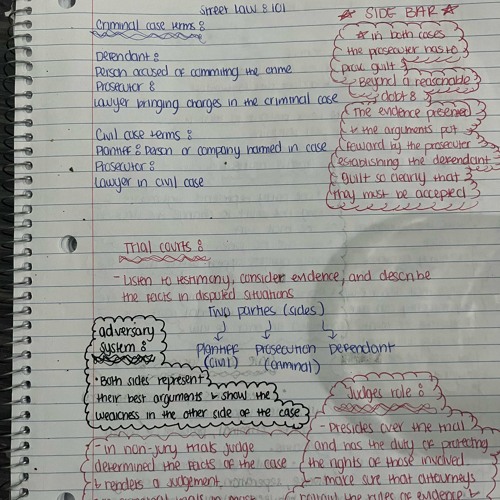 Street law : 101
Criminal case terms :
Defendant :
Person accused of commiting the crime
Prosecutor :
lawyer bringing charges in the criminal case
Civil case terms :
Plantiff : Person or company named in case
Prosecutor :
Lawyer in civil case
SIDE BAR
* in both cases
the prosecuter has to
prove guilt
Beyond a reasonable
dobt :
The evidence presened
& the arguments put
foward by the prosecuter
establishing the defendant
Guilt so clearly that
they must be accepted
Trial courts :
- Listen to testimony, consider evidence, and describe
the facts in disputed situations
Two parties (sides)
Plantiff Prosecution Defendant
(Civil) (Criminal)
adversary
system :
• Both sides represent
their best arguments & show the
weakness in the other side of the case
Judges role :
- Presides over the trial
and has the duty of protecting
the rights of those involved
- make sure that attourneys
rules of evidence
- in non-jury trials judge
determined the facts of the case
& renders a judgement